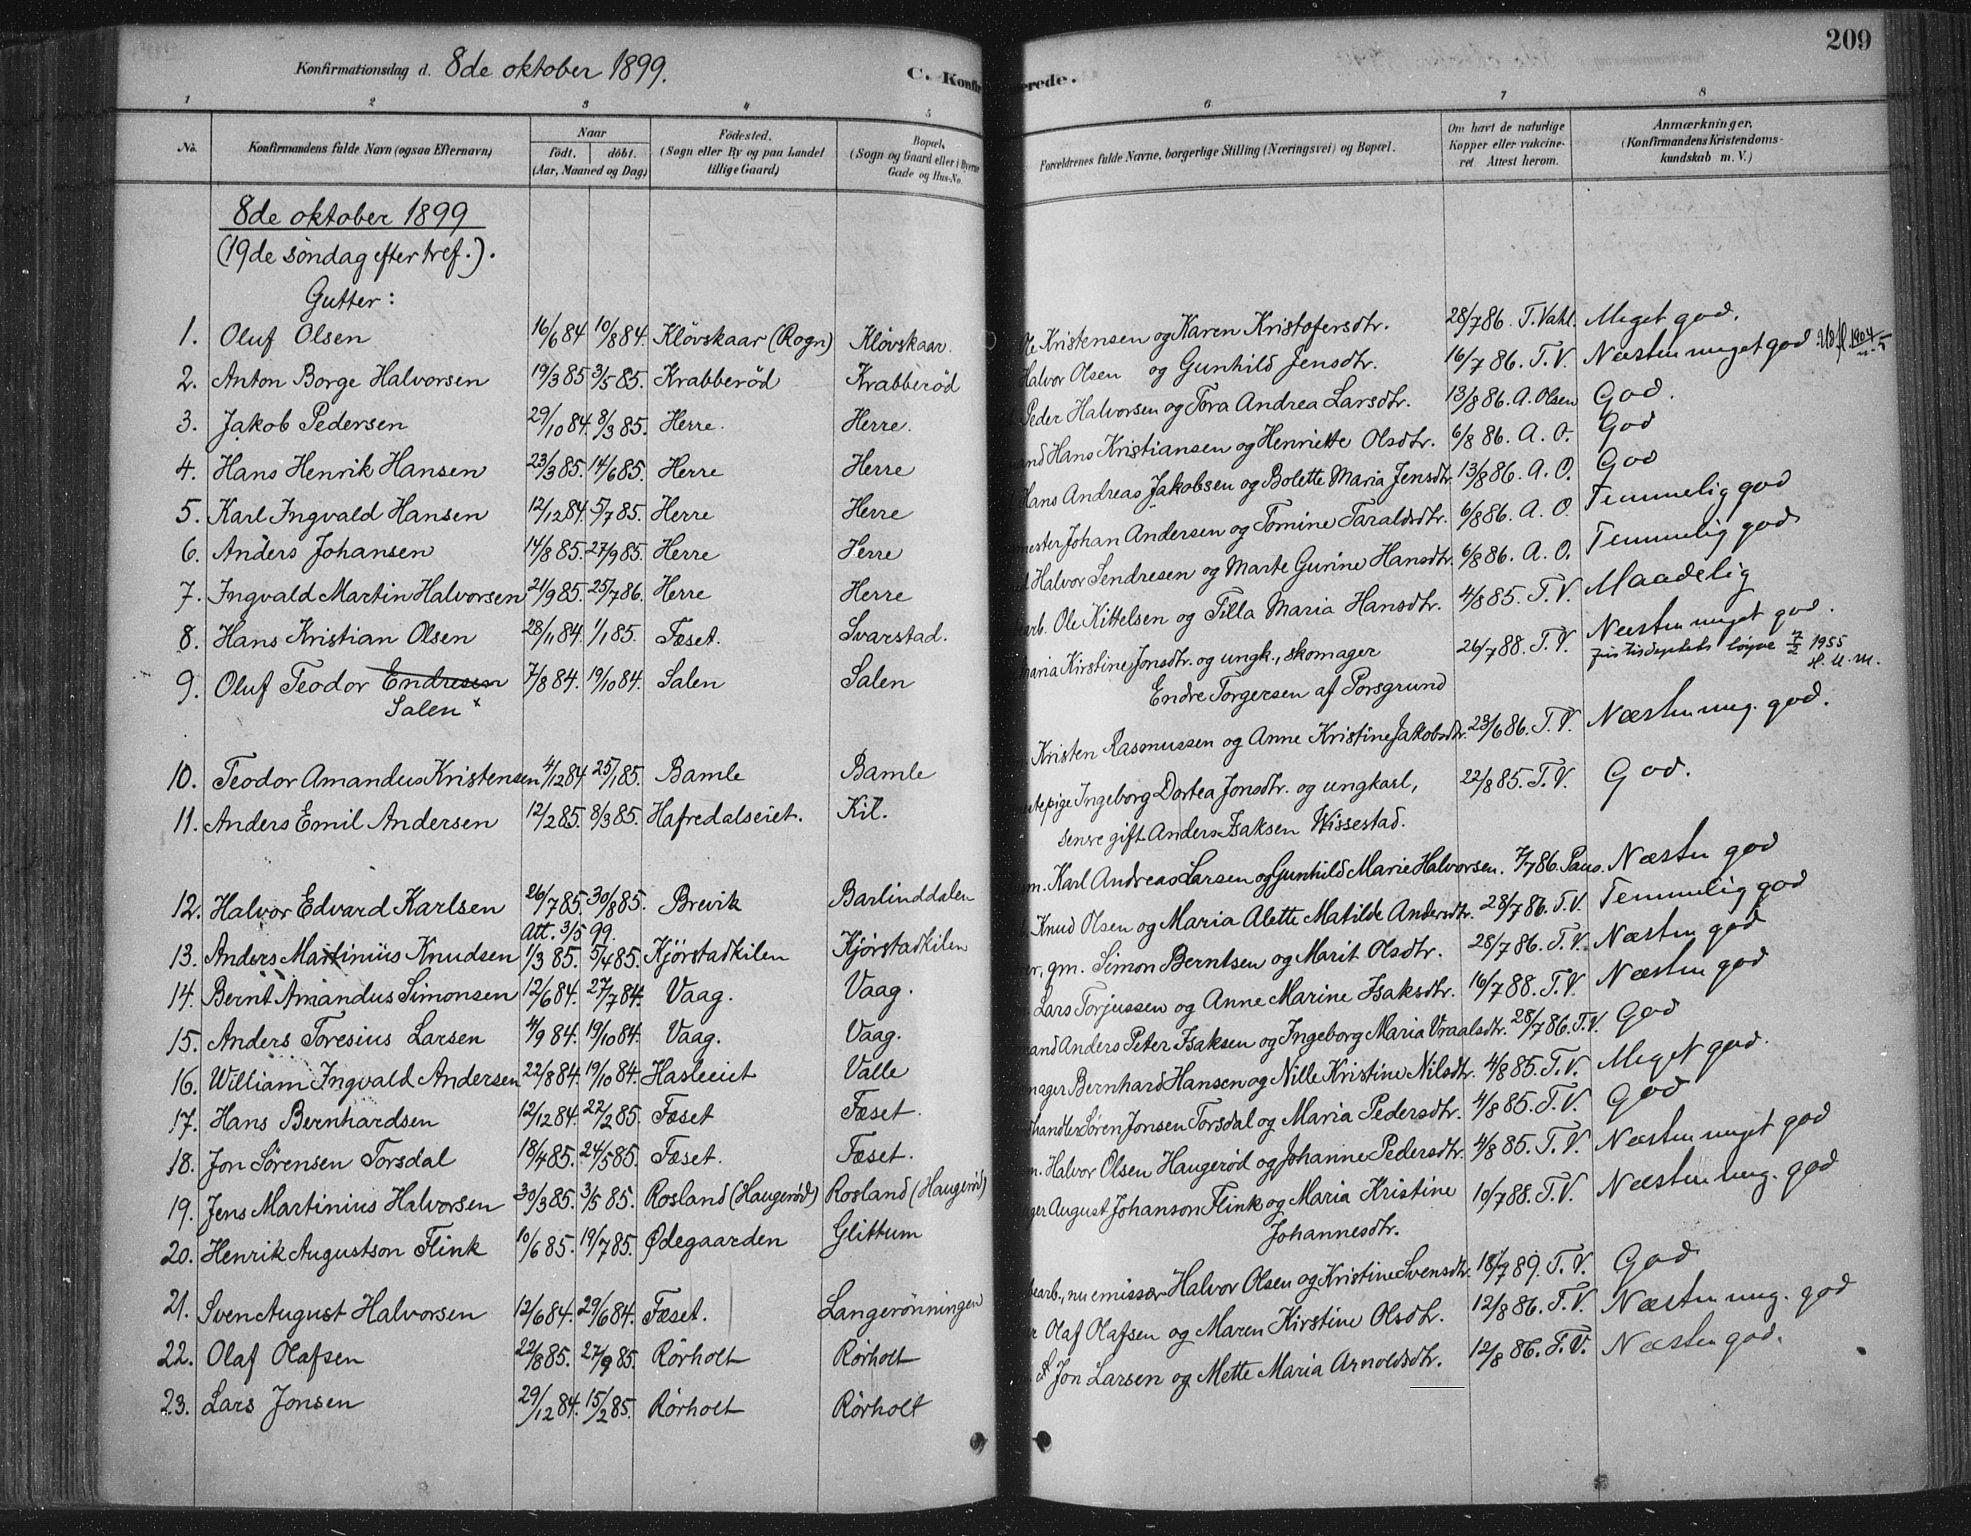 209
Konfirmationsdag d. 8de oktober 1899.
C. Konfir
erede.
1 2 3 4 5 6 7 8
No. Konfirmandens fulde Navn (ogsaa Efternavn) Naar födt. döbt. (Aar, Maaned og Dag) Födested. (Sogn eller By og paa Landet tillige Gaard) Bopæl. (Sogn og Gaard eller i Byerne Gade og Hus-No. Forældrenes fulde Navne, borgerlige Stilling (Næringsvei) og Bopæl. Om havt de naturlige Kopper eller vakcineret. Attest herom. Anmærkninger. (Konfirmandens Kristendomskundskab m. V.)
8de oktober 1899
(19de söndag efter tref.).
Gutter:
1. Oluf Olsen 16/6 84 10/8 84. Klövskaar (Rogn) Klövskaar. Ole Kristensen og Karen Kristofersdtr. 28/7 86. T. Vahl. Meget god.
2. Anton Borge Halvorsen 19/3 85 3/5 85. Krabberöd Krabberöd Halvor Olsen og Gunhild Jensdtr. 16/7 86. T. V. Næsten meget god 1904
3. Jakob Pedersen 29/10 84. 8/3 85. Herre. Herre. Peder Halvorsen og Tora Andrea Larsdtr. 13/8 86. A. Olsen God.
4. Hans Henrik Hansen 23/3 85. 14/6 85. Herre Herre and Hans Kristiansen og Henriette Olsdtr. 6/8 86. A. O. God
5. Karl Ingvald Hansen 12/12 84. 5/7 85. Herre Herre Hans Andreas Jakobsen og Bolette Maria Jensdtr. 13/8 86. A. O. God
6. Anders Johansen 14/8 85. 27/9 85. Herre Herre mester Johan Andersen og Tomine Taraldsdtr. 6/8 86. A. O. Temmelig god
7. Ingvald Martin Halvorsen 21/9 85. 25/7 86. Herre Herre Halvor Sendresen og Marte Gurine Hansdtr. 6/8 86. A. O. Temmelig god
8. Hans Kristian Olsen 28/11 84. 1/1 85. Fæset. Svarstad. earb. Ole Kittelsen og Tilla Maria Hansdtr. 4/8 85. T. V. Maadelig
9. Oluf Teodor Endresen 7/8 84. 19/10 84. Salen Salen Maria Kirstine Jonsdtr. og ungk., skomager 26/7 88. T. V. Næsten meget god.
Salen x Endre Torgersen af Porsgrund løyve 7/2 1955
10. Teodor Amandus Kristensen 4/12 84 25/1 85. Bamle Bamle Kristen Rasmussen og Anne Kristine Jakobsdtr. 23/6 86. T. V. Næsten meg. god.
11. Anders Emil Andersen 12/2 85. 8/3 85. Hafredalseiet. Kil. tepige Ingeborg Dortea Jonsdtr. og ungkarl, 22/8 85. T. V. God.
senre gift Anders Isaksen Wissestad.
12. Halvor Edvard Karlsen 26/7 85. 30/8 85. Brevik Barlinddalen m. Karl Andreas Larsen og Gunhild Marie Halvorsen. 7/7 86. Paus. Næsten god
Att. 3/5 99.
13. Anders Martinius Knudsen 1/3 85. 5/4 85. Kjörstadkilen Kjörstadkilen Knud Olsen og Maria Alette Matilde Andersdtr. 28/7 86. T. V. Temmelig god
14. Bernt Amandus Simonsen 12/6 84. 27/7 84. Vaag. Vaag. er, gm. Simon Berntsen og Marit Olsdtr. 28/7 86. T. V. Næsten god
15. Anders Toresius Larsen 4/9 84. 19/10 84. Vaag. Vaag. Lars Torjussen og Anne Marine Isaksdtr. 16/7 88. T. V. Næsten god
16. William Ingvald Andersen 22/8 84. 19/10 84. Hasleeiet Valle and Anders Peter Isaksen og Ingeborg Maria Vraalsdtr. 28/7 86. T. V. God
17. Hans Bernhardsen 12/12 84. 22/2 85. Fæset Fæset. mager Bernhard Hansen og Nille Kristine Nilsdtr. 4/8 85. T. V. Meget god.
18. Jon Sörensen Torsdal 18/4 85. 24/5 85. Fæset. Fæset. handler Sören Jonsen Torsdal og Maria Pedersdtr. 4/8 85. T. V. God
19. Jens Martinius Halvorsen 30/3 85. 3/5 85. Rosland (Haugeröd) Rosland (Haugeröd) m. Halvor Olsen Haugerød og Johanne Pedersdtr. 4/8 85. T. V. Næsten meget god
20. Henrik Augustson Flink 10/6 85. 19/7 85. Ødegaarden Glittum ger August Johanson Flink og Maria Kristine 10/7 88. T. V. Næsten meg. god
Johannesdtr.
21. Sven August Halvorsen 12/6 84. 29/6 84. Fæset. Langerönningen earb., nu emissær Halvor Olsen og Kristine Svensdtr. 18/7 89. T. V. God
22. Olaf Olafsen 22/8 85. 27/9 85. Rörholt Rörholt r Olaf Olafsen og Maren Kirstine Olsdtr. 12/8 86. T. V. Næsten meg. god
23. Lars Jonsen 29/12 84. 15/2 85. Rörholt Rörholt Jon Larsen og Mette Maria Arnoldsdtr. 12/8 86. T. V. Næsten god.